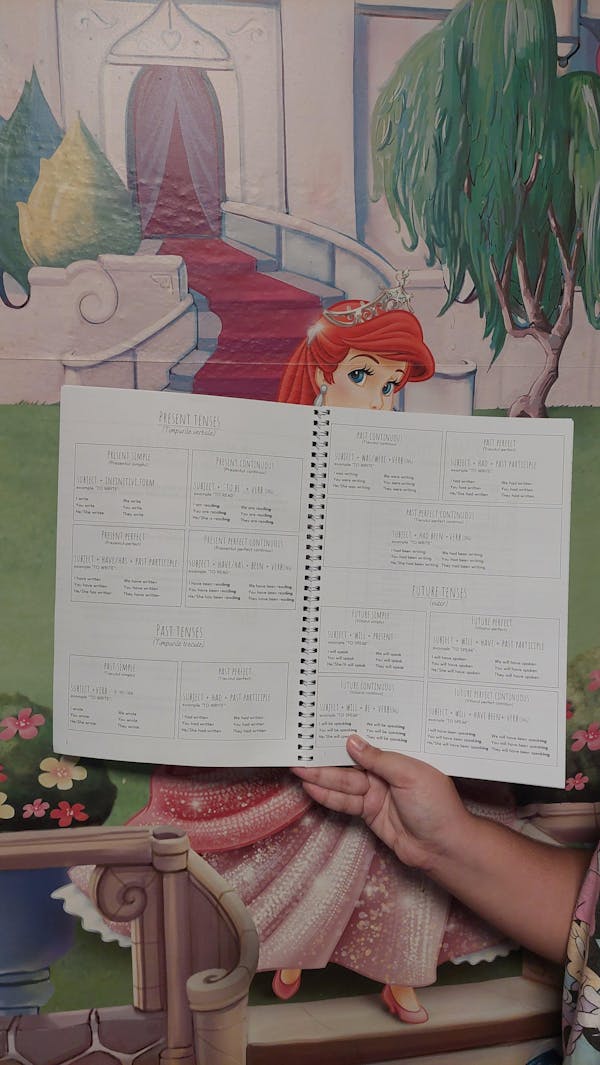 PRESENT TENSES
(Timpurile verbale)
PRESENT SIMPLE
(Prezentul simplu)
SUBJECT + INFINITIVE FORM
example "TO WRITE"
I write We write
You write You write
He/She writes They write
PRESENT CONTINUOUS
(Prezentul continuu)
SUBJECT + TO BE + VERB
example "TO READ"
I am reading We are reading
You are reading You are reading
He/She is reading They are reading
PRESENT PERFECT
(Prezentul perfect)
SUBJECT + HAVE/HAS + PAST PARTICIPLE
example "TO WRITE"
I have written We have written
You have written You have written
He/She has written They have written
PRESENT PERFECT CONTINUOUS
(Prezentul perfect continuu)
SUBJECT + HAVE/HAS + BEEN + VERB
example "TO READ"
I have been reading We have been reading
You have been reading You have been reading
He/She has been reading They have been reading
PAST TENSES
(Timpurile trecute)
PAST SIMPLE
(Trecutul simplu)
SUBJECT + VERB
example "TO WRITE"
I wrote We wrote
You wrote You wrote
He/She wrote They wrote
PAST PERFECT
(Trecutul perfect)
SUBJECT + HAD + PAST PARTICIPLE
example "TO WRITE"
I had written We had written
You had written You had written
He/She had written They had written
PAST CONTINUOUS
(Trecutul continuu)
SUBJECT + WAS/WERE + VERB(ING)
example "TO WRITE"
I was writing We were writing
You were writing You were writing
He/She was writing They were writing
PAST PERFECT
(Trecutul perfect)
SUBJECT + HAD + PAST PARTICIPLE
example "TO WRITE"
I had written We had written
You had written You had written
He/She had written They had written
PAST PERFECT CONTINUOUS
(Trecutul perfect continuu)
SUBJECT + HAD BEEN + VERB(ING)
example "TO WRITE"
I had been writing We had been writing
You had been writing You had been writing
He/She had been writing They had been writing
FUTURE TENSES
(viitor)
FUTURE SIMPLE
(Viitorul simplu)
SUBJECT + WILL + PRESENT
example "TO SPEAK"
I will speak We will speak
You will speak You will speak
He/She will speak They will speak
FUTURE PERFECT
(Viitorul perfect)
SUBJECT + WILL + HAVE + PAST PARTICIPLE
example "TO SPEAK"
I will have spoken We will have spoken
You will have spoken You will have spoken
He/She will have spoken They will have spoken
FUTURE CONTINUOUS
(Viitorul continuu)
SUBJECT + WILL + BE + VERB(ING)
example "TO SPEAK"
I will be speaking We will be speaking
You will be speaking You will be speaking
He/She will They will be speaking
FUTURE PERFECT CONTINUOUS
(Viitorul perfect continuu)
SUBJECT + WILL + HAVE BEEN + VERB(ING)
example "TO SPEAK"
I will have been speaking We will have been speaking
You will have been speaking You will have been speaking
He/She will have been speaking They will have been speaking